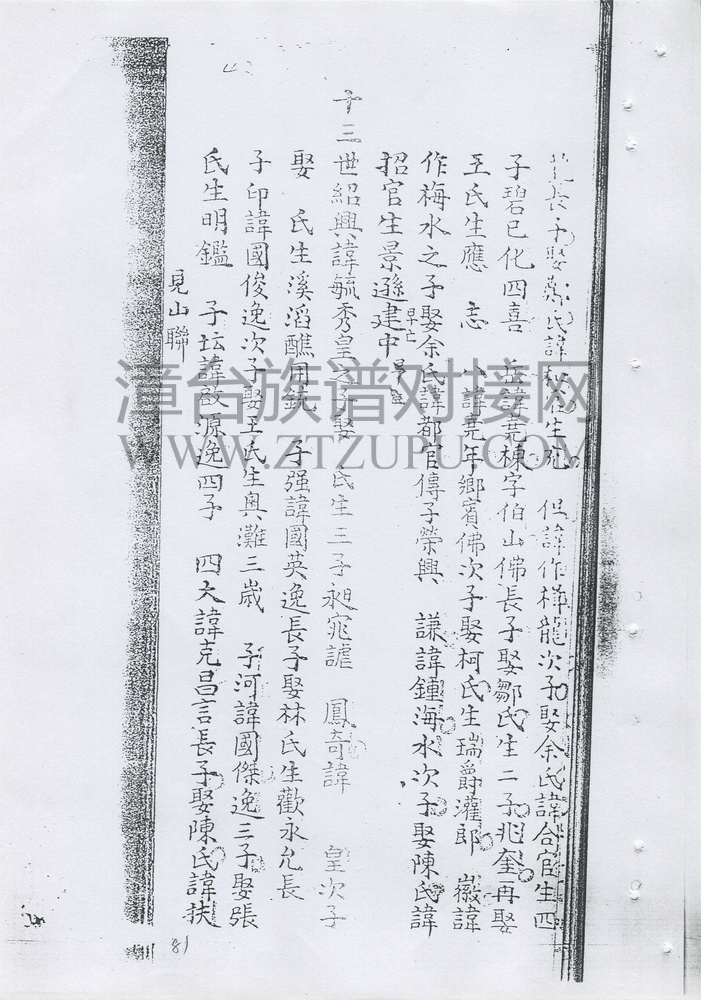 長子娶 氏諱 生 但諱作梅龍次子娶余氏諱合官生四
子碧已化四喜 諱堯棟字伯山佛長子娶鄒氏生二子兆奎再娶
王氏生應 志 八諱堯年鄉賓佛次子娶柯氏生瑞爵灌郎 嶽諱
作梅水之子娶余氏諱都官傳子榮興 謙諱鍾海水次子娶陳氏諱
招官生景遜早亡建中早
十三世紹興諱毓秀皇之子娶 氏生三子昶 謔 鳳奇諱 皇次子
娶 氏生溪滔醮用銃 子强諱國英逸長子娶林氏生歡永允長
子印諱國俊逸次子娶王氏生奥灘三歲 子河諱國傑逸三子娶張
氏生明鑑 子坛諱啟源逸四子 四大諱克昌言長子娶陳氏諱扶
見山聯
81
漳台族谱对接网
WWW.ZTZUPU.COM